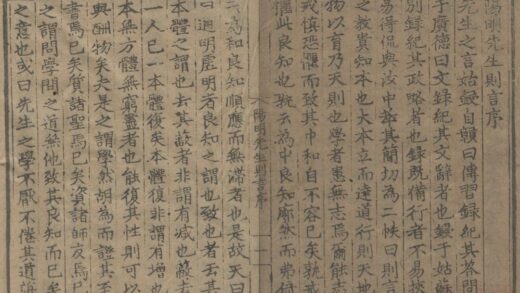 陽明先生則言序
先生之言始鋟自贛曰傳習錄紀其答問
于廣德曰文錄紀其文辭者也鋟于姑蘇
別錄紀其政略者也錄既備行者不易挾
易得侃與汝中萃其簡切為二帙曰則言
之教貴知本也大本立而達道行則天地
物以育乃天則也學者患無志焉爾能志
戒慎恐懼而致其中和自不容已矣孰戒
懼此良知也孰云為中良知廓然而弗倚
陽明先生則言序
云為和良知順應而無滯者也是故天曰
曰道明虛明者良知之謂也致也者去其
本體之謂也去其故者非謂有減也蔽去
一人已一本體復矣本體復非謂有增也
本無方體無窮盡者也能復其性則可以
與酬物矣夫是之謂學然胡為而證其至
書焉已矣質諸聖焉已矣資諸師友焉已
之謂問學問之道無他致其良知而已矣
之意也或曰先生之學不厭不倦其道